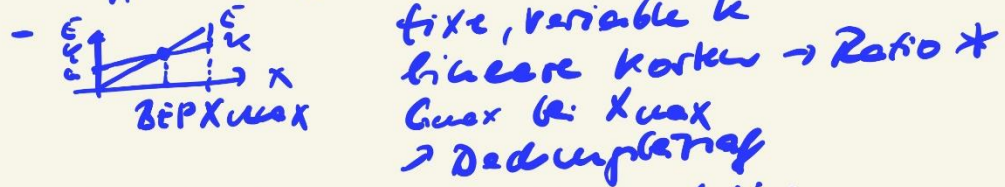 - E K E K X
BEP Xmax
fixe, variable K
lineare Kosten → Ratio *
Gmax bei Xmax
→ Deckungsbeitrag